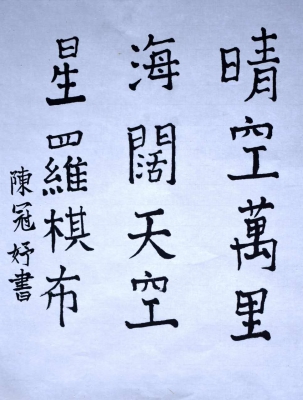 晴空萬里
海闊天空
星羅棋布
陳冠妤書